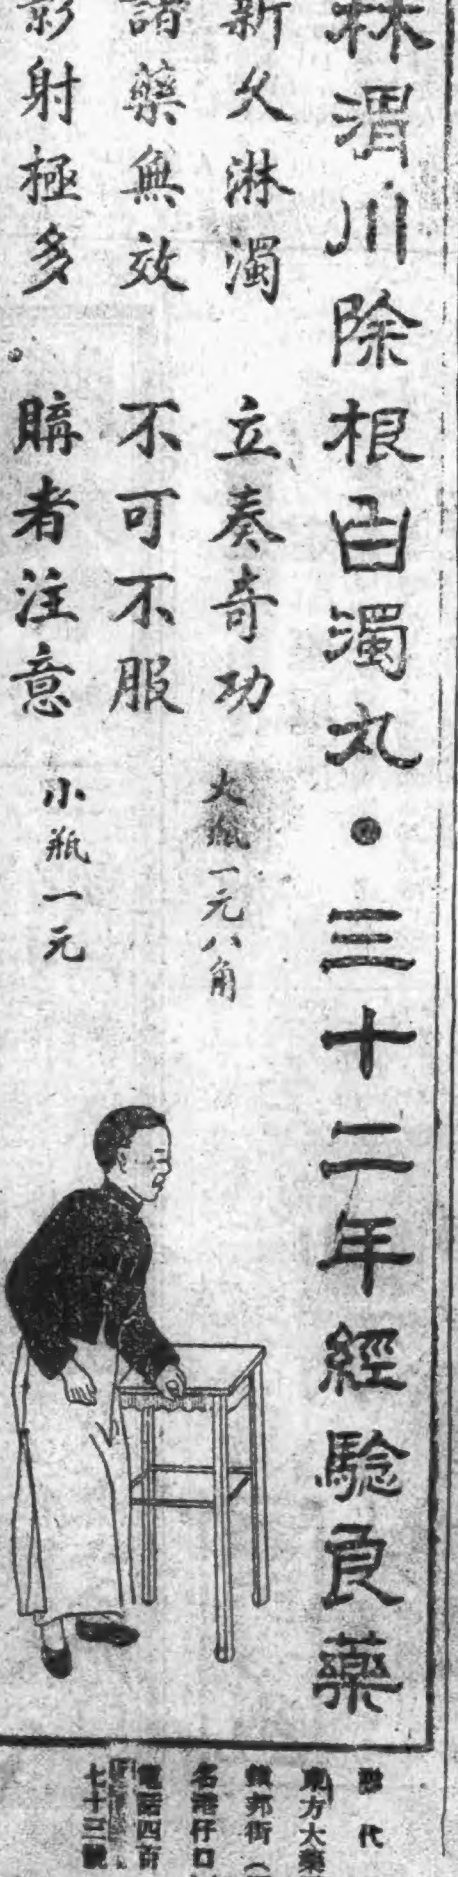 林渭川除根白濁丸·三十二年經驗良藥
新久淋濁 立奏奇功
大瓶一元八角
諸藥無效 不可不服
影射極多。購者注意
小瓶一元
代
東方大藥
邦街（
名港仔口
電話四百
七十三號